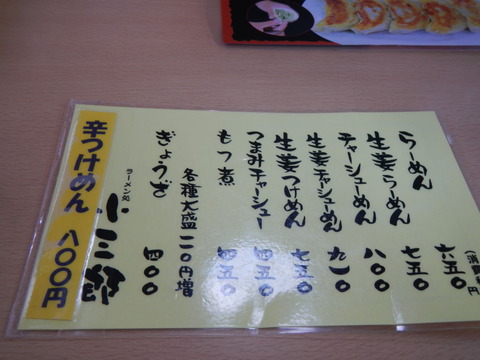 らーめん 六五〇円
生姜らーめん 七五〇
チャーシューめん 八〇〇
生姜チャーシューめん 九一〇
生姜つけめん 七五〇
つまみチャーシュー 四五〇
もつ煮 四五〇
各種大盛一一〇円増
ぎょうざ 四〇〇
ラーメン処 小三郎
辛つけめん 八〇〇円